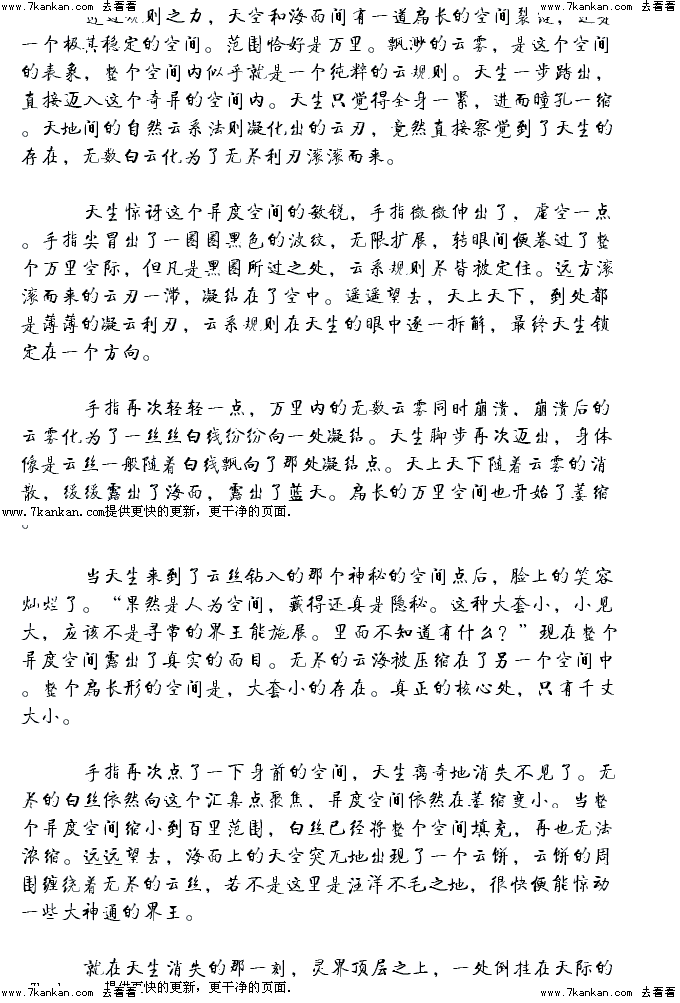 www.7kankan.com 去看看 www.7kankan.com 去看看 www.7kankan.com 去看看
规则之力，天空和海面间有一道扁长的空间裂缝，这是
一个极其稳定的空间。范围恰好是万里。飘渺的云雾，是这个空间
的表象，整个空间内似乎就是一个纯粹的云规则。天生一步踏出，
直接迈入这个奇异的空间内。天生只觉得全身一紧，进而瞳孔一缩
。天地间的自然云系法则凝化出的云刃，竟然直接察觉到了天生的
存在，无数白云化为了无尽利刃滚滚而来。
天生惊讶这个异度空间的敏锐，手指微微伸出了，虚空一点
。手指尖冒出了一圈圈黑色的波纹，无限扩展，转眼间便卷过了整
个万里空际，但凡是黑圈所过之处，云系规则尽皆被定住。远方滚
滚而来的云刃一滞，凝结在了空中。遥遥望去，天上天下，到处都
是薄薄的凝云利刃，云系规则在天生的眼中逐一拆解，最终天生锁
定在一个方向。
手指再次轻轻一点，万里内的无数云雾同时崩溃，崩溃后的
云雾化为了一丝丝白线纷纷向一处凝结。天生脚步再次迈出，身体
像是云丝一般随着白线飘向了那处凝结点。天上天下随着云雾的消
散，缓缓露出了海面，露出了蓝天。扁长的万里空间也开始了萎缩
www.7kankan.com提供更快的更新，更干净的页面.
。
当天生来到了云丝钻入的那个神秘的空间点后，脸上的笑容
灿烂了。“果然是人为空间，藏得还真是隐秘。这种大套小，小见
大，应该不是寻常的界王能施展。里面不知道有什么？”现在整个
异度空间露出了真实的面目。无尽的云海被压缩在了另一个空间中
。整个扁长形的空间是，大套小的存在。真正的核心处，只有千丈
大小。
手指再次点了一下身前的空间，天生离奇地消失不见了。无
尽的白丝依然向这个汇集点聚焦，异度空间依然在萎缩变小。当整
个异度空间缩小到百里范围，白丝已经将整个空间填充，再也无法
浓缩。远远望去，海面上的天空突兀地出现了一个云饼，云饼的周
围缠绕着无尽的云丝，若不是这里是汪洋不毛之地，很快便能惊动
一些大神通的界王。
就在天生消失的那一刻，灵界顶层之上，一处倒挂在天际的
提供更快的更新，更干净的页面.
www.7kankan.com 去看看 www.7kankan.com 去看看 www.7kankan.com 去看看